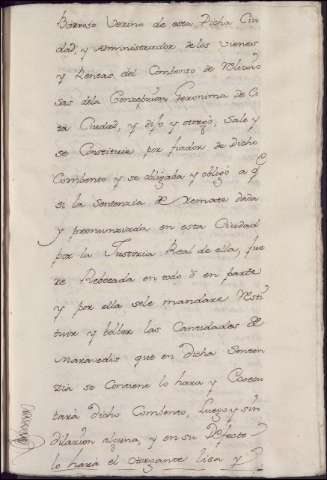 Barroso Vezino de esta Dicha Ciu
dad, y administrador de los vienes
y Rentas del Combento de Relixio
sas dela Conzepzion Geronima de es
ta Ciudad, y dijo y otorgó, sale y
se Constituia por fiador de dicho
Combento y se obligaba y obligó a q̃
si la sentenzia de remate dada
y pronunziada en esta Ciudad
por la Justizia Real de ella, fue
re Rebocada en todo ó en parte
y por ella sele mandare Resti
tuir y bolber las Cantidades de
maravedis que en dicha Senten
zia se Contiene lo hara y Execu
tará dicho Combento, luego y sin
dilazion alguna, y en su Defecto
lo hara el otorgante lisa y